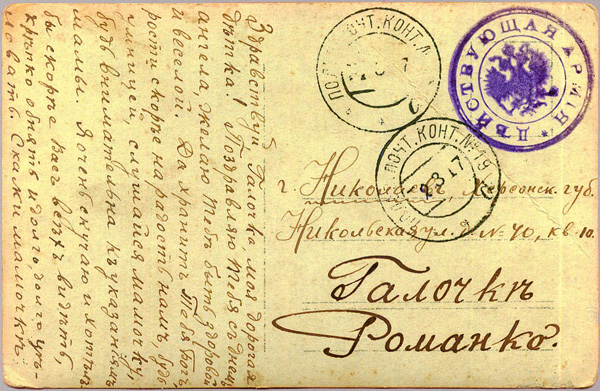 Здравствуй Галочка моя дорогая
Дѣтка! Поздравляю Тебя съ днем
ангела, желаю Тебѣ быть здоровой
и веселой. Да хранитъ Тебя Богъ
рости скорѣе на радость намъ, будь
умницей, слушайся мамочку,
будь внимательна къ указаніямъ
мамы. Я очень скучаю и хотѣлъ
бы скорѣе Васъ всѣхъ видѣть,
крѣпко обнять и долго долго цѣ-
ловать. Скажи мамочкѣ
ПОЧТ. КОНТ.
ДѢЙСТВУЮЩАЯ АРМІЯ
ПОЧТ. КОНТ. №19
2 8 17
г. Николаевъ, Херсонск. губ.
Никольская ул. д. № 40, кв. 10.
Галочкѣ
Романко.